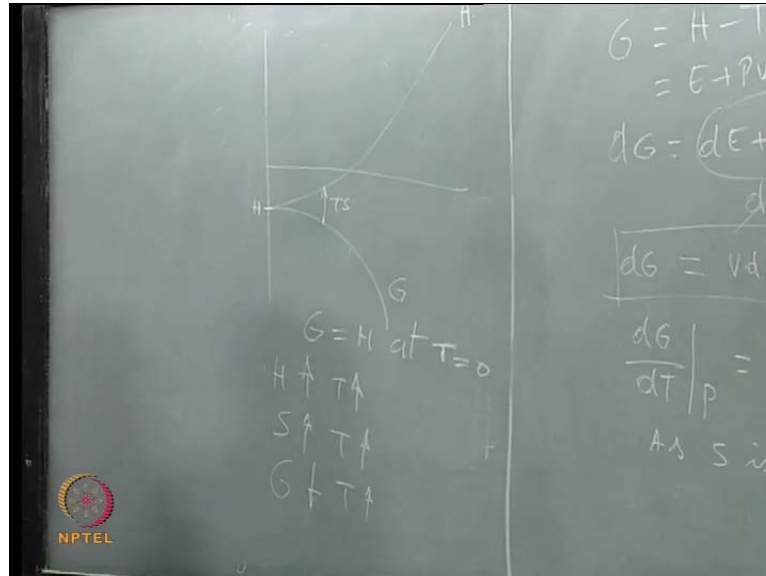 H
H
TS
G
G = H at T=0
H ↑ T↑
S↑ T↑
G ↓ T↑
G = H - T
= E + PV
dG = dE +
d
dG = Vd
dG/dT|P =
As S is
NPTEL